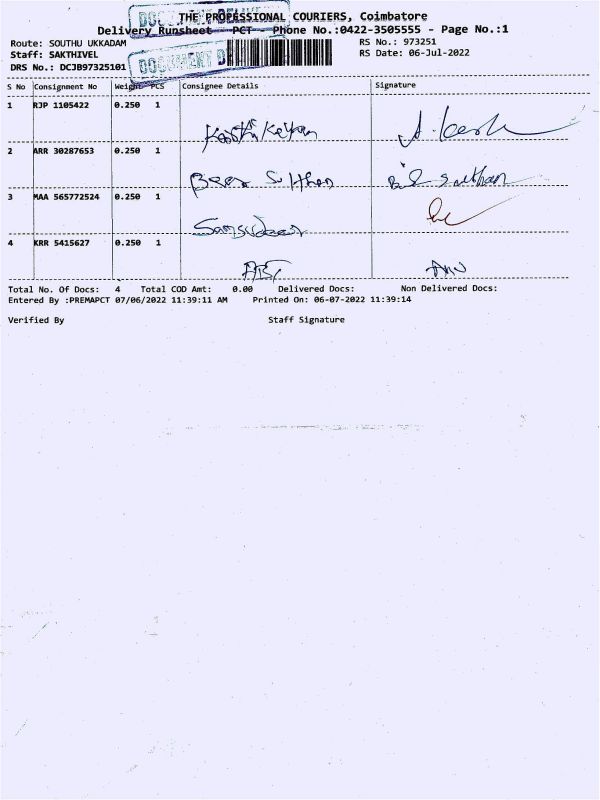 THE PROFESSIONAL COURIERS, Coimbatore
Delivery Runsheet - PCT - Phone No.:0422-3505555 - Page No.:1
Route: SOUTHU UKKADAM RS No.: 973251
Staff: SAKTHIVEL RS Date: 06-Jul-2022
DRS No.: DCJB97325101
DOCUMENT
S No Consignment No Weight PCS Consignee Details Signature
1 RJP 1105422 0.250 1
Karthikeyan
2 ARR 30287653 0.250 1
Beer Sulthan
3 MAA 565772524 0.250 1
Samsudeen
4 KRR 5415627 0.250 1
Total No. Of Docs: 4 Total COD Amt: 0.00 Delivered Docs: Non Delivered Docs:
Entered By :PREMAPCT 07/06/2022 11:39:11 AM Printed On: 06-07-2022 11:39:14
Verified By Staff Signature